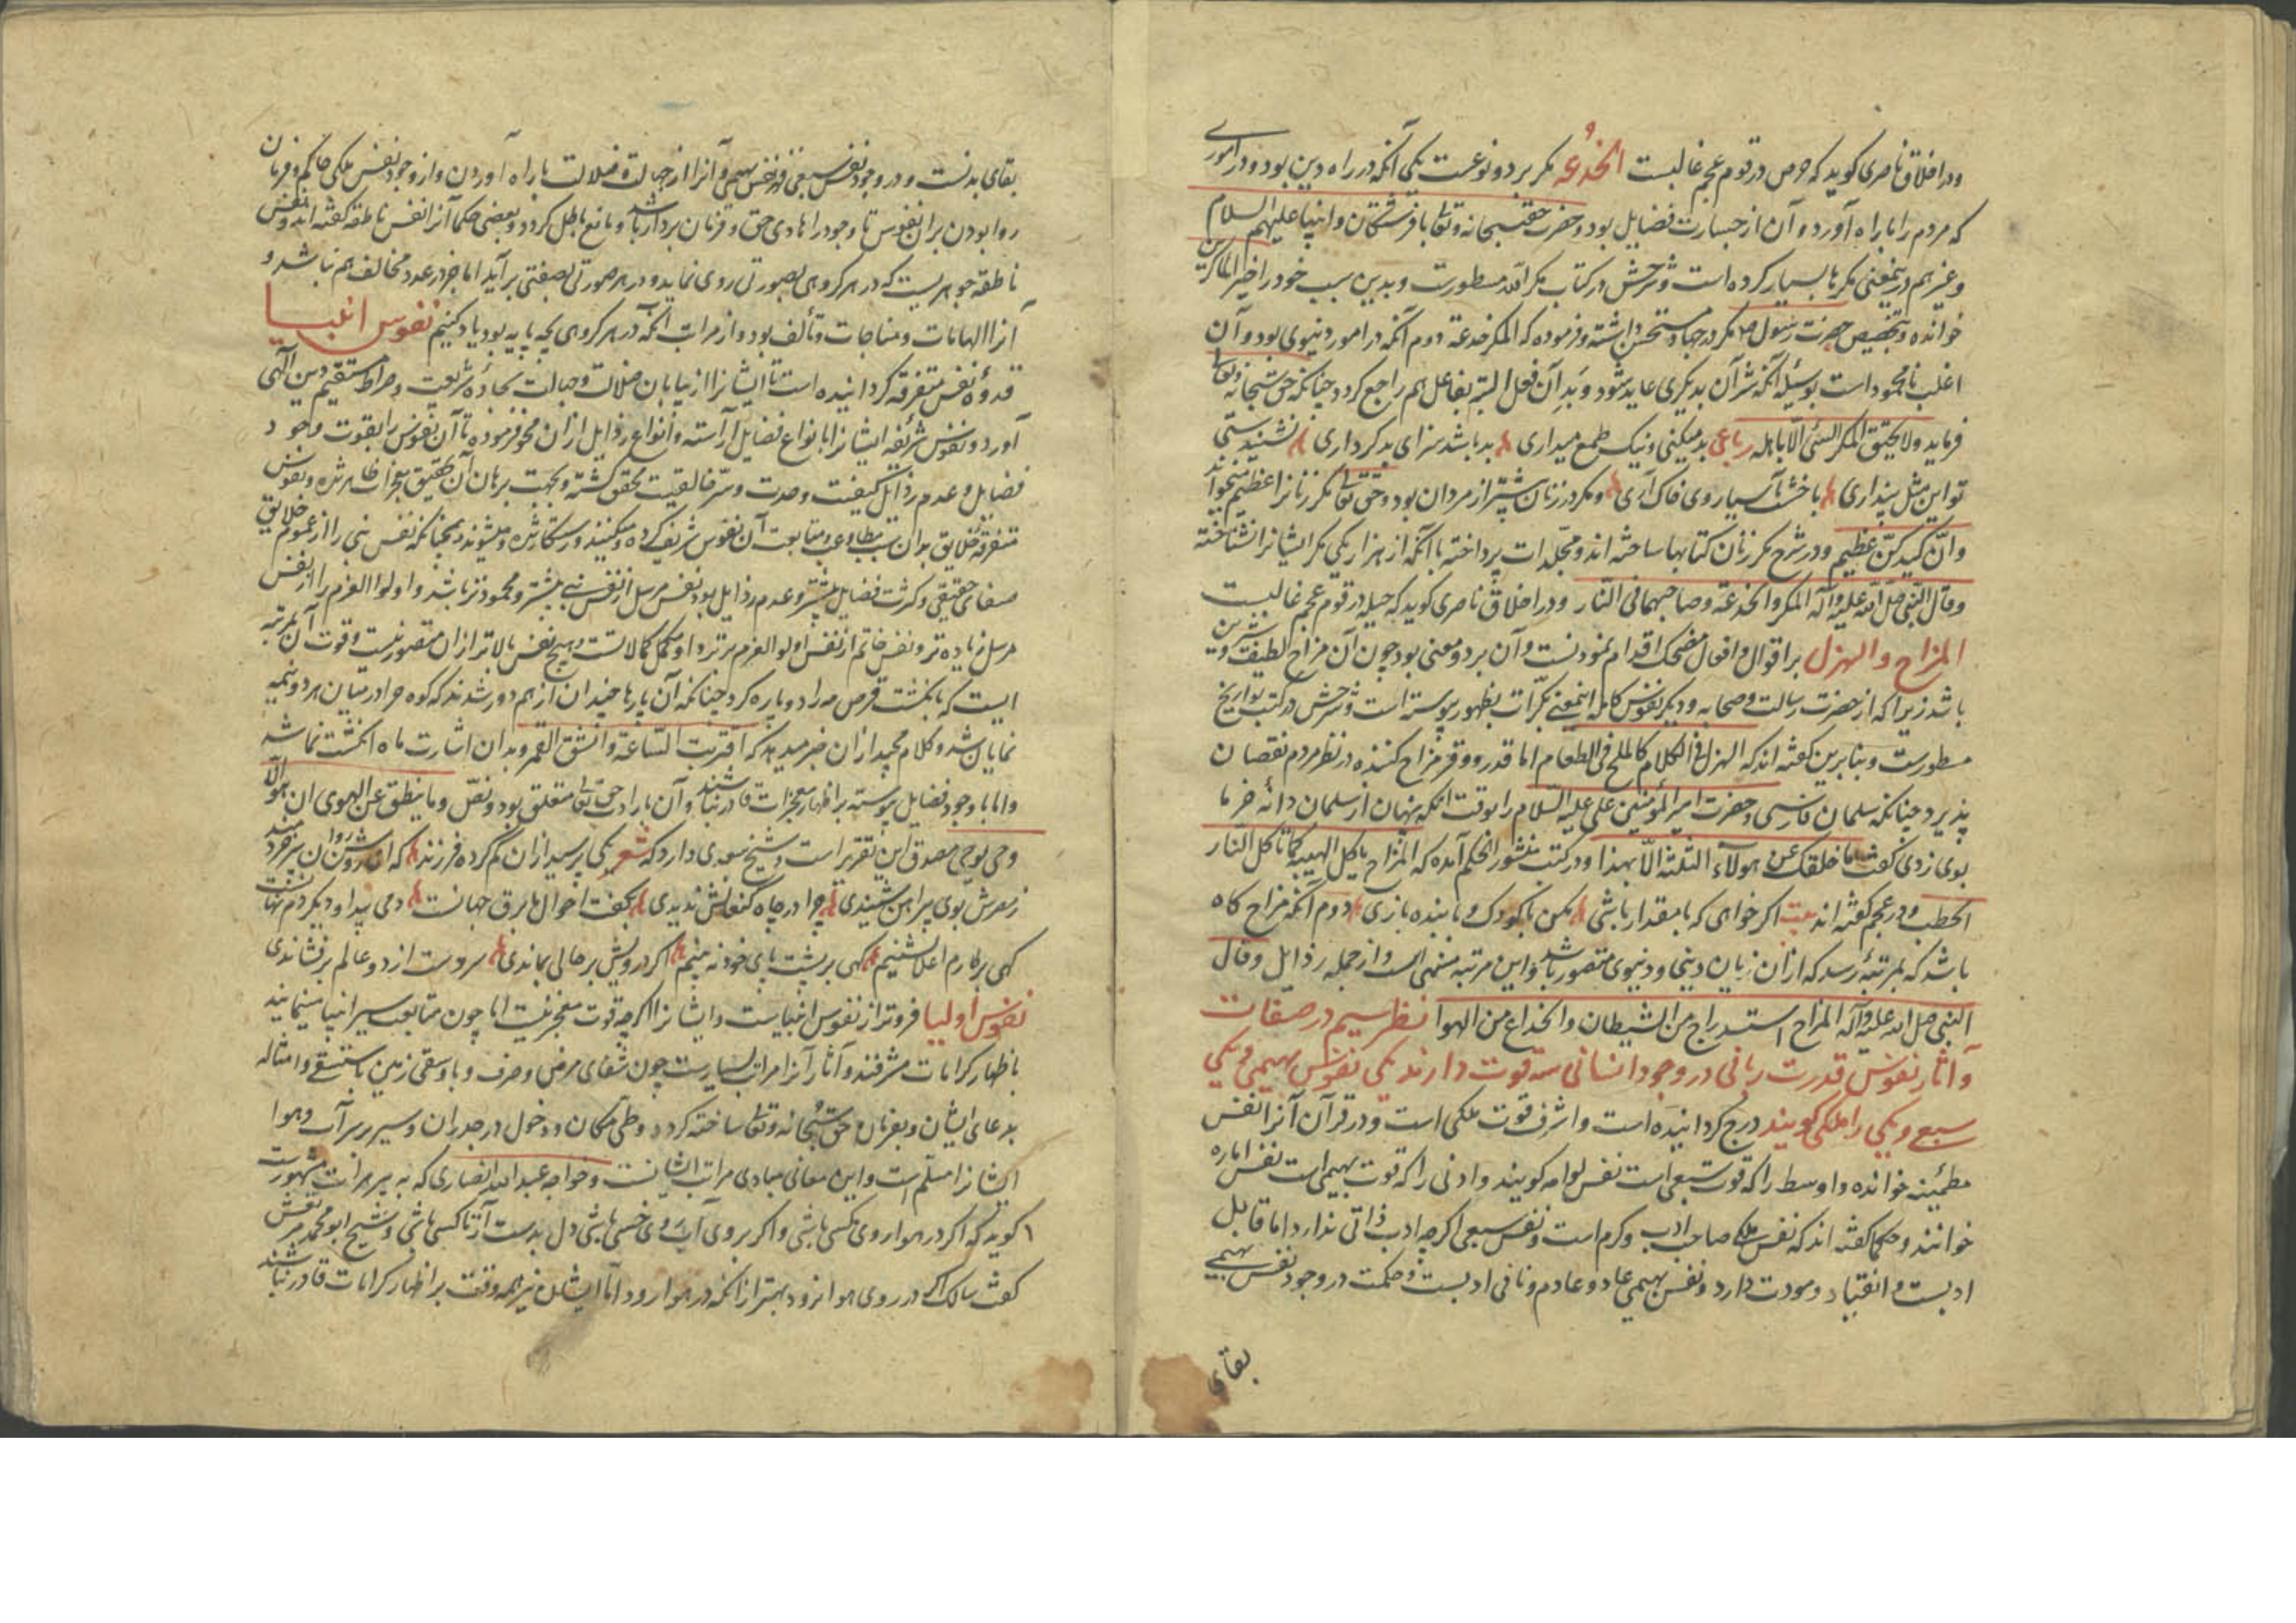 و در اخلاق ناصری کوید که حرص در قوم عجم غالبست الخدعه مکر بر دو نوعست یکی آنکه در راه دین بود و در اموری
که مردم را با راه آورد و آن از جسارت فضایل بود و حضرت حق سبحانه و تعالی با فرشتکان و انبیا علیهم السلام
و غیر هم درینمعنی مکرها بسیار کرده است و شرحش در کتاب مکر الله مسطورست و بدین سبب خود را خیر الماکرین
خوانده و بتخصیص حضرت رسول مکر در جهاد مستحسن داشته و فرموده که المکر خدعة دوم آنکه در امور دنیوی بود و آن
اغلب نامحمود است بوسیلهٔ آنکه شر آن بدیکری عاید شود و بد آن فعل البته بفاعل هم راجع کردد چنانکه حق سبحانه و تعالی
فرماید ولا یحیق المکر السیئ الا باهله رباعی بد میکنی و نیک طمع میداری بد باشد سزای بدکرداری نشنیدستی
تو این مثل پنداری با خشت آسیا روی خاک آری و مکر در زنان بیشتر از مردان بود و حق تعالی مکر زنانرا عظیم میخواند
و ان کیدکن عظیم و در شرح مکر زنان کتابها ساخته اند و مجلدات پرداخته با آنکه از هزار یکی مکر ایشانرا نشناخته
وقال النبی صلی الله علیه وآله المکر والخدعة وصاحبهما فی النار و در اخلاق ناصری کوید که حیله در قوم عجم غالبست
المزاح والهزل بر اقوال و افعال مضحک اقدام نمودنست و آن بر دو معنی بود چون آن مزاح لطیف و شیرین
باشد زیرا که از حضرت رسالت و صحابه و دیکر نفوس کامله اینمعنی بکرات بظهور پیوسته است و شرحش در کتب تواریخ
مسطورست و بنابرین کفته اند که الهزل فی الکلام کالملح فی الطعام اما قدر و وقر مزاح کننده در نظر مردم نقصان
پذیرد چنانکه سلمان فارسی و حضرت امیر المؤمنین علی علیه السلام را بوقت آنکه پنهان از سلمان دانه خرما
بوی زدی کفت ما خلفک عن هولآء الثلثة الا بهذا و در کتب منثور الحکم آمده که المزاح یاکل الهیبة کما تاکل النار
الحطب و در عجم کفته اند بیت اکر خواهی که با مقدار باشی مکن با کودک و با بنده بازی دوم آنکه مزاح کاه
باشد که بمرتبهٔ رسد که ازان زیان دینی و دنیوی متصور باشد و این مرتبه منهی است و از جمله رذایل وقال
النبی صلی الله علیه وآله المزاح استدراج من الشیطان والخداع من الهوا نظر سیم در صفات
و آثار نفوس قدرت ربانی در وجود انسانی سه قوت دارند یکی نفوس بهیمی و یکی
سبعی و یکی را ملکی کویند درج کردانیده است و اشرف قوت ملکی است و در قرآن آنرا نفس
مطمئنه خوانده و اوسط را که قوت سبعی است نفس لوامه کویند و ادنی را که قوت بهیمی است نفس اماره
خوانند و حکما کفته اند که نفس ملکی صاحب ادب و کرم است و نفس سبعی اکرچه ادب ذاتی ندارد اما قابل
ادبست و انقیاد و مودت دارد و نفس بهیمی عاد و عادم و نافی ادبست و حکمت در وجود نفس بهیمی
بقای
بقای بدنست و در وجود نفس سبعی قهر نفس بهیمی و آنرا از جهالت و ضلالت باراه آوردن و از وجود نفس ملکی حاکم و فرمان
روا بودن بر آن نفوس تا وجود را هادی حق و فرمان بردار باشد و مانع باطل کردد و بعضی حکما آنرا نفس ناطقه کفته اند و نفس
ناطقه جوهریست که در هر کروهی بصورتی روی نماید و در هر صورتی بصفتی برآید اما جز در عدد مخالف هم نباشد و
آنرا الهامات و مناجات و تألف بود و از مراتب آنکه در هر کروهی بچه پایه بود یاد کنیم نفوس انبیا
قدوهٔ نفس متفرقه کردانیده است تا ایشانرا از بیابان ضلالت و جهالت بجادهٔ شریعت و صراط مستقیم دین آلهی
آورد و نفوس شریفه ایشانرا بانواع فضایل آراسته و انواع رذایل ازان محو فرموده تا آن نفوس را بقوت وجود
فضایل و عدم رذایل کیفیت وحدت و سر خالقیت محقق کشته و بجهت برهان آن تحقیق معجزات ظاهر شده و نفوس
متفرقهٔ خلایق بدان سبب مطاوعت و متابعت آن نفوس شریف کرده و میکنند و رستکار شده و میشوند همچنانکه نفس نبی را از عموم خلایق
صفای حقیقی و کثرت فضایل بیشتر و عدم رذایل بود نفس مرسل از نفس نبی بیشتر و محمودتر باشد و اولوا العزم را از نفس
مرسل زیاده تر و نفس خاتم از نفس اولو العزم برتر و او مکمل کمالاتست و هیچ نفس بالاتر ازان متصور نیست و قوت آن بمرتبه
ایست که بانکشت قرص مه را دو پاره کرد چنانکه آن پارها چندان از هم دور شدند که کوه حرا درمیان هر دو نیمه
نمایان شد و کلام مجید ازان خبر میدهد که اقتربت الساعة وانشق القمر و بدان اشارت ماه انکشت نما شد
و اما با وجود فضایل پیوسته بر اظهار معجزات قادر نباشند و آن بارادت حق تعالی متعلق بود و نص وما ینطق عن الهوی ان هو الا
وحی یوحی مصدق این تقریر است و شیخ سعدی دارد که شعر یکی پرسید ازان کم کرده فرزند که ای روشن روان پیر خردمند
ز مصرش بوی پیراهن شنیدی چرا در چاه کنعانش ندیدی بکفت احوال ما برق جهانست دمی پیدا و دیکر دم نهانست
کهی بر طارم اعلا نشینیم کهی بر پشت پای خود نه بینیم اکر درویش بر حالی بماندی سر و دست از دو عالم برفشاندی
نفوس اولیا فروتر از نفوس انبیاست و ایشانرا اکرچه قوت معجز نیست اما چون متابعت سیر انبیا مینمایند
باظهار کرامات مشرفند و آثار آنرا مراتب بسیارست چون شفای مرضی و صرف وبا و سقی زمین مستسقی و امثاله
بدعای ایشان و بفرمان حق سبحانه و تعالی ساخته کردد و طی مکان و دخول در جدران و سیر بر سر آب و هوا
ایشانرا مسلم است و این معانی مبادی مراتب ایشانست و خواجه عبد الله انصاری که به پیر هرات مشهورست
کوید که اکر در هوا روی مکسی باشی و اکر بر روی آب روی خسی باشی دل بدست آر تا کسی باشی و شیخ ابو محمد مرتعش
کفت سالک اکر در روی هوا نرود بهتر ازانکه در هوا رود اما ایشان نیز همه وقت بر اظهار کرامات قادر نباشند